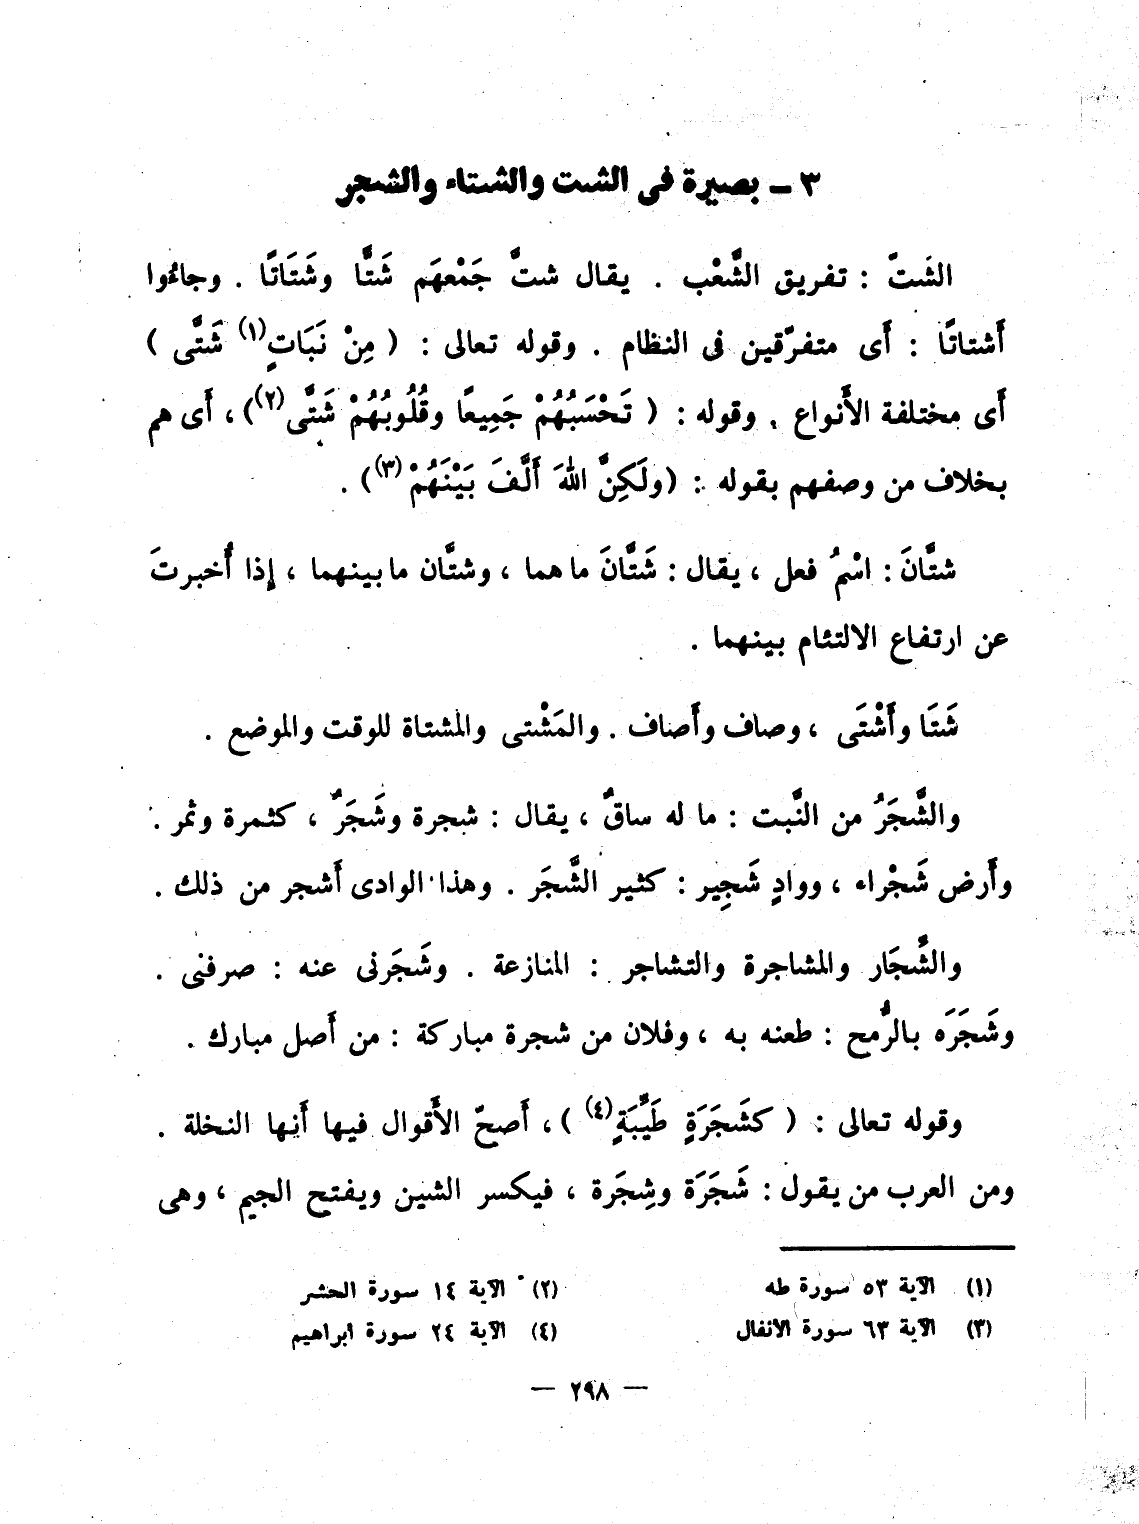 ٣ ـ بصيرة فى الشت والشتاء والشجر
الشَتّ : تفريق الشَّعْب . يقال شتَّ جَمْعهَم شَتًّا وشَتَاتًا . وجاءُوا
أَشتاتًا : أَى متفرّقين فى النظام . وقوله تعالى : ( مِنْ نَبَاتٍ(١) شَتَّى )
أَى مختلفة الأَنواع . وقوله : ( تَحْسَبُهُمْ جَمِيعًا وقُلُوبُهُمْ شَتَّى(٢)) ، أَى هم
بخلاف من وصفهم بقوله : (ولَكِنَّ اللهَ أَلَّفَ بَيْنَهُمْ(٣)) .
شتَّانَ : اسْمُ فعل ، يقال : شَتَّانَ ما هما ، وشتَّان ما بينهما ، إِذا أُخبرتَ
عن ارتفاع الالتئام بينهما .
شَتَا وأَشْتَى ، وصاف وأَصاف . والمَشْتى والمشتاة للوقت والموضع .
والشَّجَرُ من النَّبت : ما له ساقٌ ، يقال : شجرة وشَجَرٌ ، كثمرة وثمر .
وأَرض شَجْراء ، ووادٍ شَجِير : كثير الشَّجَر . وهذا الوادى أَشجر من ذلك .
والشِّجَار والمشاجرة والتشاجر : المنازعة . وشَجَرنى عنه : صرفنى .
وشَجَرَه بالرُّمح : طعنه به ، وفلان من شجرة مباركة : من أَصل مبارك .
وقوله تعالى : ( كشَجَرَةٍ طَيِّبَةٍ(٤) ) ، أَصحّ الأَقوال فيها أَنها النخلة .
ومن العرب من يقول : شَجَرَة وشِجَرة ، فيكسر الشين ويفتح الجيم ، وهى
(١) الآية ٥٣ سورة طه
(٢) الآية ١٤ سورة الحشر
(٣) الآية ٦٣ سورة الانفال
(٤) الآية ٢٤ سورة ابراهيم
— ٢٩٨ —